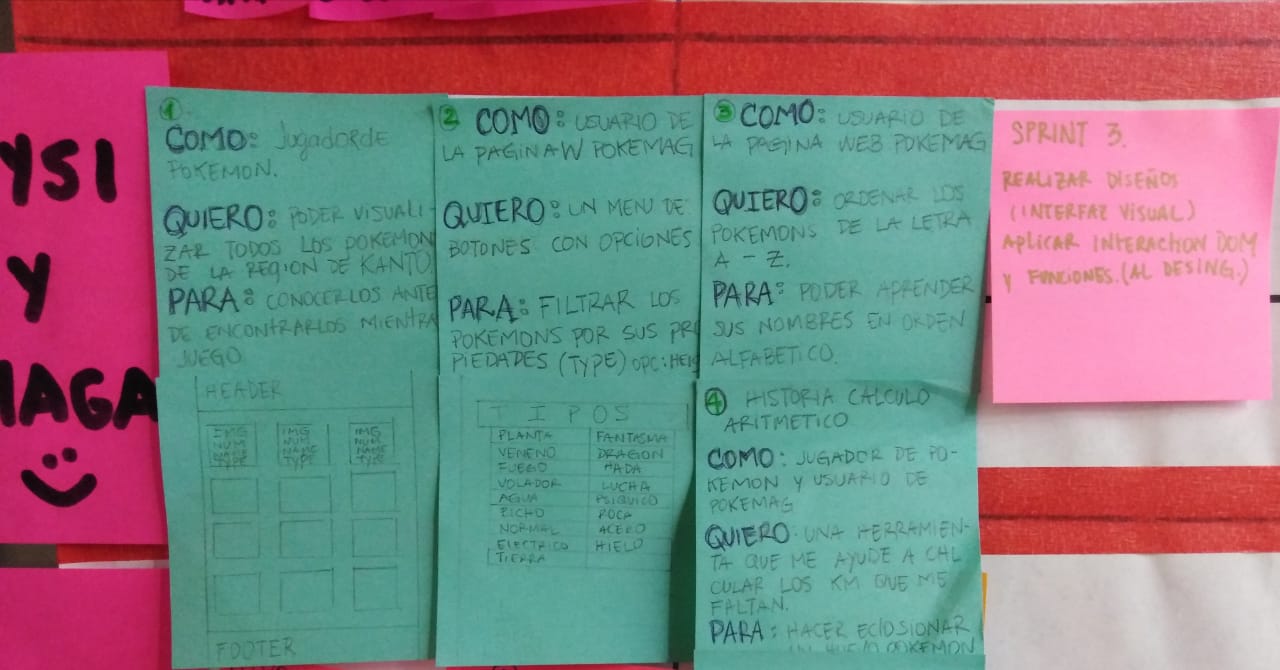 YSI
Y
MAGA
1
COMO: Jugador de
POKEMON.
QUIERO: PODER VISUALI-
ZAR TODOS LOS POKEMON
DE LA REGION DE KANTO
PARA: CONOCERLOS ANTE
DE ENCONTRARLOS MIENTRA
JUEGO
HEADER
IMG IMG IMG
NUM NUM NUM
NAME NAME NAME
TYPE TYPE TYPE
FOOTER
2 COMO: USUARIO DE
LA PAGINA W POKEMAG
QUIERO: UN MENU DE
BOTONES CON OPCIONES
PARA: FILTRAR LOS
POKEMONS POR SUS PR
PIEDADES (TYPE) OPC: HEIG
TIPOS
PLANTA FANTASMA
VENENO DRAGON
FUEGO HADA
VOLADOR LUCHA
AGUA PSIQUICO
BICHO ROCA
NORMAL ACERO
ELECTRICO HIELO
TIERRA
3 COMO: USUARIO DE
LA PAGINA WEB POKEMAG
QUIERO: ORDENAR LOS
POKEMONS DE LA LETRA
A - Z.
PARA: PODER APRENDER
SUS NOMBRES EN ORDEN
ALFABETICO.
4 HISTORIA CALCULO
ARITMETICO
COMO: JUGADOR DE PO-
KEMON Y USUARIO DE
POKEMAG
QUIERO: UNA HERRAMIEN-
TA QUE ME AYUDE A CAL
CULAR LOS KM QUE ME
FALTAN.
PARA: HACER ECLOSIONAR
UN HUEVO POKEMON
SPRINT 3.
REALIZAR DISEÑOS
(INTERFAZ VISUAL)
APLICAR INTERACHION DOM
Y FUNCIONES. (AL DESING.)